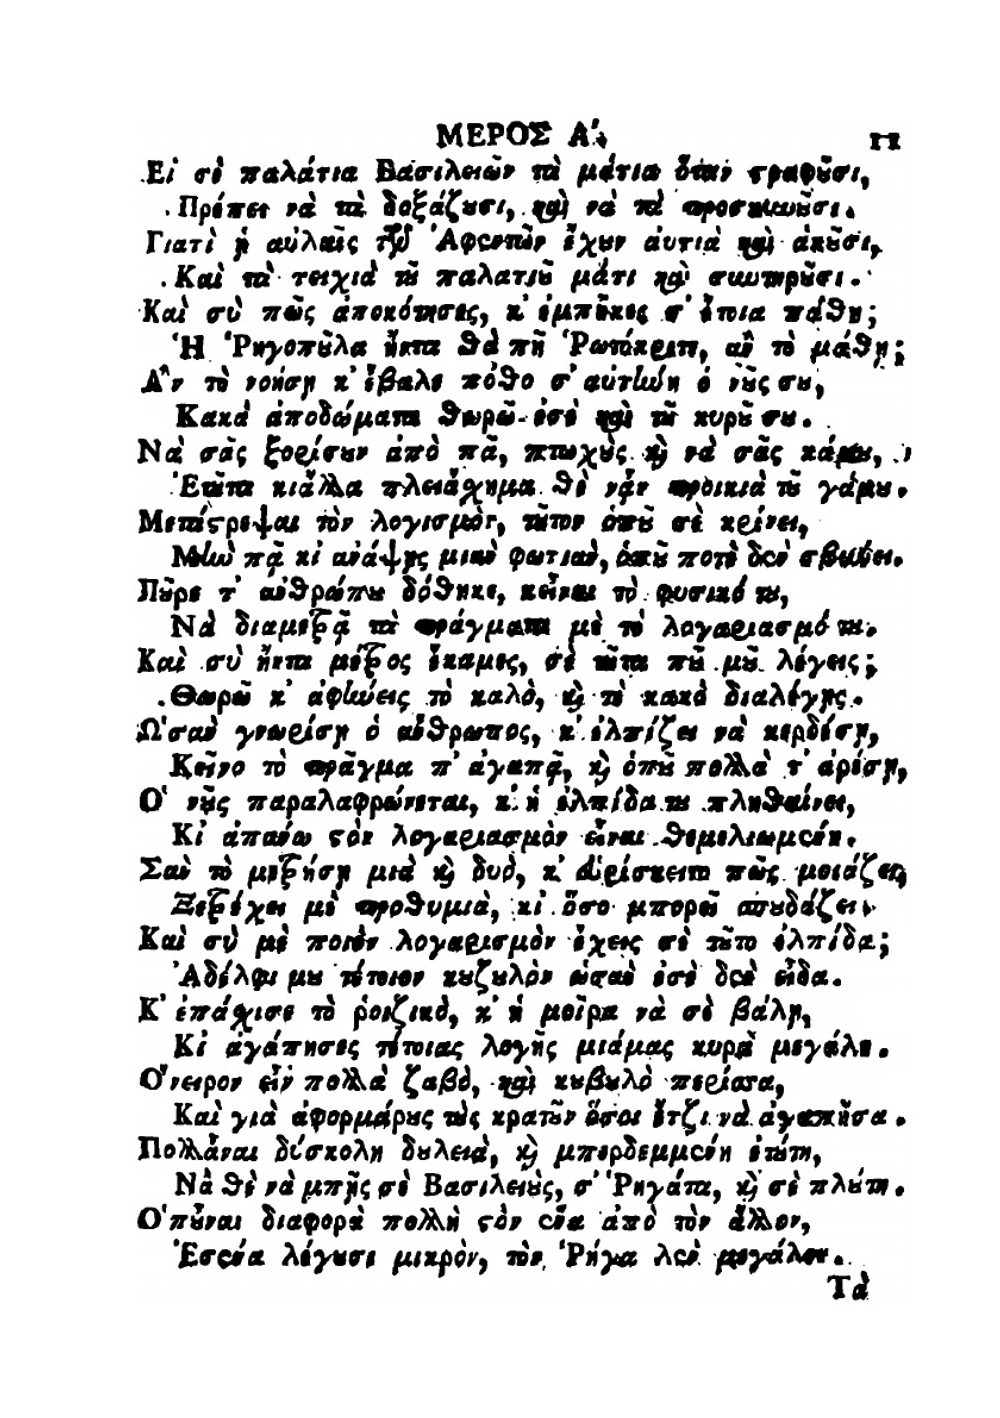 ΜΕΡΟΣ Α'. 11
Εἰ σὲ παλάτια Βασιλειῶν τὰ μάτια ὅταν στραφοῦσι,
Πρέπει νὰ τὰ δοξάζουσι, καὶ νὰ τὰ προσκυνοῦσι.
Γιατὶ ᾑ αὐλαῖς τῶν Ἀφεντῶν ἔχουν ἀυτιὰ καὶ ἀκοῦσι,
Καὶ τὰ τειχιὰ τοῦ παλατιοῦ μάτι καὶ συντηροῦσι.
Καὶ σὺ πῶς ἀποκότησες, κ' ἐμπῆκες σ' ἔτοια πάθη;
Ἡ Ῥηγοποῦλα ἤντα θὰ πῇ Ῥωτόκριτε, ἂν τὸ μάθῃ;
Ἂν τὸ νοήσῃ κ' ἔβαλε πόθο σ' αὐτὴν ὁ νοῦς σου,
Κακὰ ἀποδώματα θωρῶ ἐσὲ καὶ τοῦ κυροῦ σου.
Νὰ σᾶς ξορίσουν ἀπὸ πᾶ, πτωχοὺς καὶ νὰ σᾶς κάμου,
Ἐτοῦτα κιἄλλα πλειάσχημα θὲ νἆν προικιὰ τοῦ γάμου.
Μετάστρεψαι τὸν λογισμὸν, τοῦτον ὁποῦ σὲ κρίνει,
Μὴν πᾷ κι ἀνάψῃς μιὰν φωτιὰν, ὁποῦ ποτὲ δὲν σβύνει.
Ποῦρε τ' ἀνθρώπου δόθηκε, κεἶναι τὸ φυσικό του,
Νὰ διαμετρᾷ τὰ πράγματα μὲ τὸ λογαριασμό του.
Καὶ σὺ ἤντα μέτρος ἔκαμες, σὲ τοῦτα ποῦ μοῦ λέγεις;
Θωρῶ κ' ἀφίνεις τὸ καλὸ, καὶ τὸ κακὸ διαλέγῃς.
Ὡσὰν γνωρίσῃ ὁ ἄνθρωπος, κ' ἐλπίζει νὰ κερδέσῃ,
Κεῖνο τὸ πρᾶγμα π' ἀγαπᾷ, καὶ ὁποῦ πολλὰ τ' ἀρέσῃ,
Ὁ νοῦς παραλαφρώνεται, κ' ἡ ἐλπίδα του πληθαίνει,
Κι ἀπάνω στὸν λογαριασμὸν εἶναι θεμελιωμένη.
Σαν τὸ μετρήσῃ μιὰ καὶ δυὸ, κ' εὑρίσκειτο πῶς μοιάζει,
Ξετρέχει μὲ προθυμιὰ, κι ὅσο μπορεῖ σπουδάζει.
Καὶ σὺ μὲ ποιὸν λογαρισμὸν ἔχεις σὲ τοῦτο ἐλπίδα;
Ἀδέλφι μου τέτοιον κουζουλὸν ὡσαν ἐσὲ δὲν εἶδα.
Κ' ἐπάσχισε τὸ ῥοιζικὸ, κ' ἡ μοῖρα νὰ σὲ βάλῃ,
Κι ἀγάπησες τέτοιας λογῆς μιάμας κυρὰ μεγάλη.
Ὄνειρον εἶν πολλὰ ζαβὸ, καὶ κουβουλὸ περίσσα,
Καὶ γιὰ ἀφορμάρους τοὺς κρατοῦν ὅσοι ἔτζι νὰ ἀγαπῆσα.
Πολλἆναι δύσκολη δουλειὰ, καὶ μπερδεμμένη ἐτούτη,
Νὰ θὲ νὰ μπῇς σὲ Βασιλειοὺς, σ' Ῥηγάτα, καὶ σὲ πλούτη.
Ὁποὖναι διαφορὰ πολλὴ στὸν ἕνα ἀπὸ τὸν ἄλλον,
Ἐσένα λέγουσι μικρὸν, τὸν Ῥήγα λὲν μεγάλον.
Τὰ